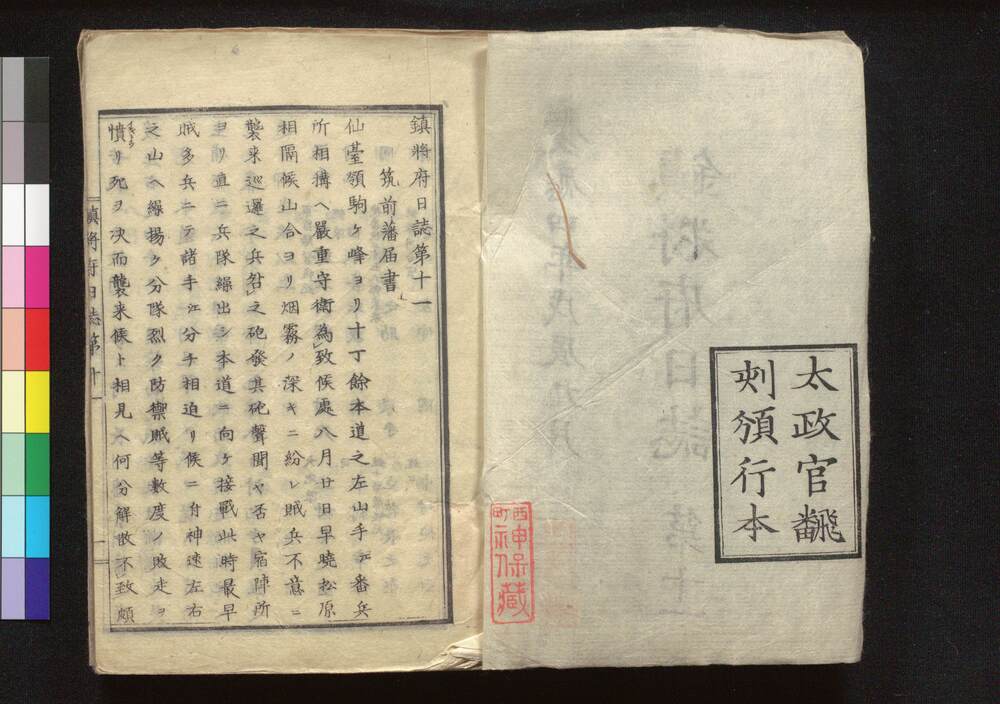 太政官飜
刻頒行本
西町
神保蔵
鎮將府日誌第十一
筑前藩届書
仙臺領駒ヶ峰ヨリ十丁餘本道之左山手ニ番兵
所相搆ヘ嚴重守衛為致候處八月廿日早曉松原
相隔候山合ヨリ烟霧ノ深キニ紛レ賊兵不意ニ
襲来巡邏之兵之砲發其砲聲聞ヤ否ヤ宿陣所
ヨリ直ニ兵隊繰出シ本道ニ向ケ接戰此時最早
賊多兵ニテ諸手江分チ相迫リ候ニ付神速左右
之山ヘ繰揚ケ分隊烈ク防禦賊等數度ノ敗走ヲ
憤リ死ヲ决而襲来候ト相見ヘ何分解散不致頗
鎮將府日誌第十一
一